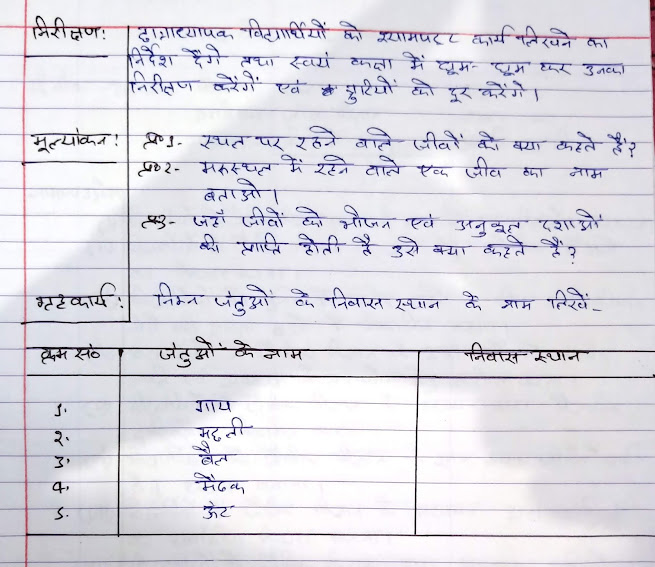 निरीक्षण: छात्राध्यापक विद्यार्थियों को श्यामपट्ट कार्य लिखने का
निर्देश देंगे तथा स्वयं कक्षा में घूम- घूम कर उनका
निरीक्षण करेंगें एवं त्रुटियों को दूर करेंगे।
मूल्यांकन: प्र०1- स्थल पर रहने वाले जीवों को क्या कहते हैं?
प्र०2- मरूस्थल में रहने वाले एक जीव का नाम
बताओ।
प्र०3- जहाँ जीवों को भोजन एवं अनुकूल दशाओं
की प्राप्ति होती है उसे क्या कहते हैं?
गृहकार्य: निम्न जंतुओं के निवास स्थान के नाम लिखें-
क्रम सं० जंतुओं के नाम निवास स्थान
1. गाय
2. मछली
3. बैल
4. मेंढक
5. ऊँट